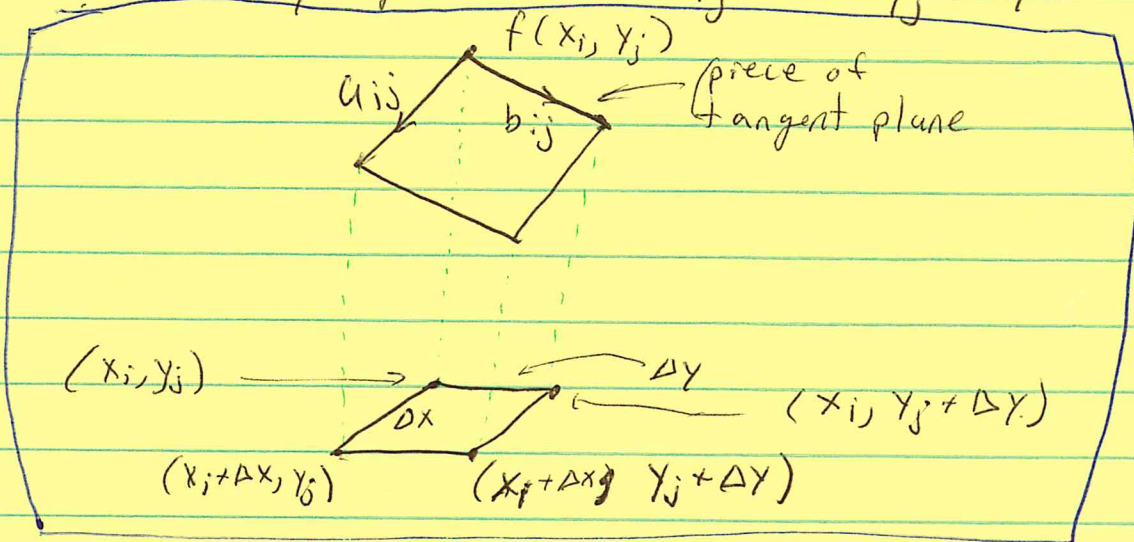 f(xi, yj)
aij
bij
piece of
tangent plane
(xi, yj)
Δy
Δx
(xi, yj + Δy)
(xi + Δx, yj)
(xi + Δx, yj + Δy)